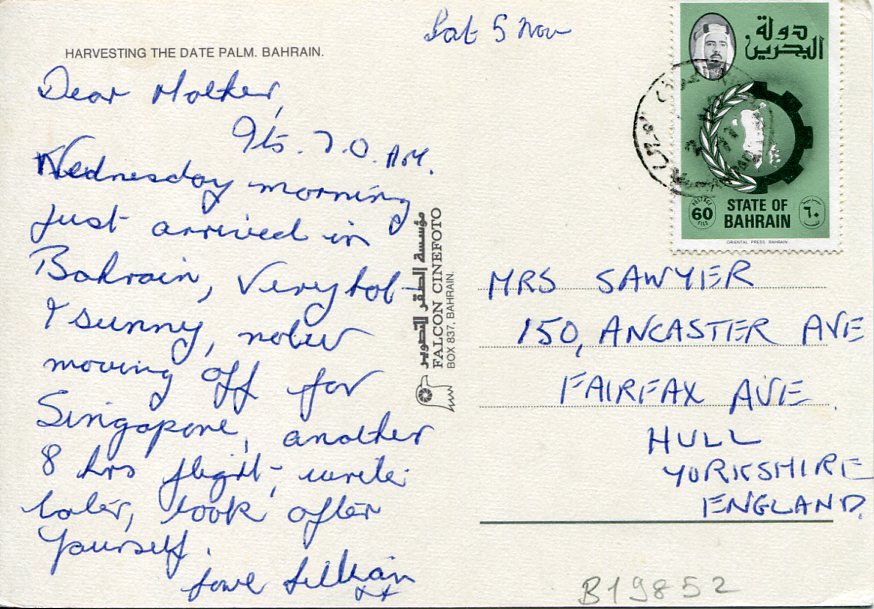 HARVESTING THE DATE PALM. BAHRAIN.
Sat 5 Nov
Dear Mother,
Its 7.0. AM.
Wednesday morning
just arrived in
Bahrain, Very hot
& sunny, now
moving off for
Singapore, another
8 hrs flight, write
later, look after
yourself.
Love Lillian
xx
مؤسسة الصقر للتصوير
FALCON CINEFOTO
BOX 837, BAHRAIN.
دولة
البحرين
POSTAGE
60
FILS
٦٠
STATE OF
BAHRAIN
ORIENTAL PRESS BAHRAIN
MRS SAWYER
150, ANCASTER AVE
FAIRFAX AVE.
HULL
YORKSHIRE
ENGLAND.
B19852